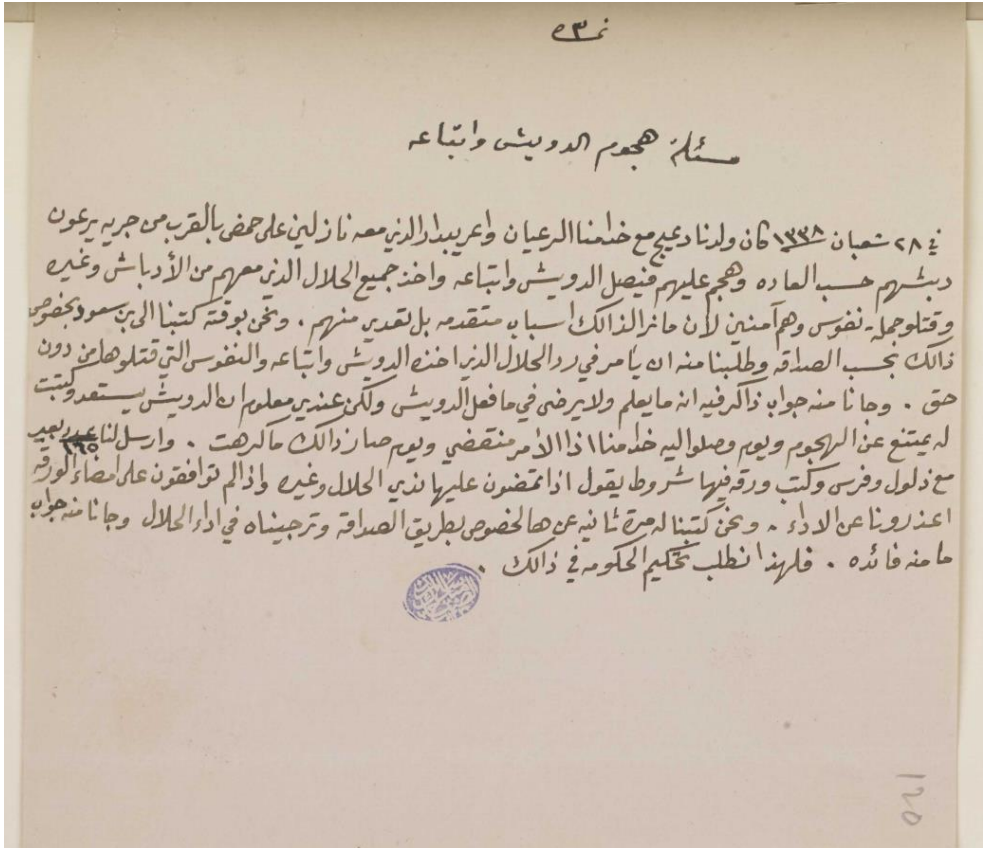 نمره ٣
مسئلة هجوم الدويش واتباعه
في ٢٨ شعبان ١٣٣٨ كان ولدنا دعيج مع خدامنا الرعيان واعريبدار الذي معه نازلين على حمض بالقرب من جريه يرعون
دبشهم حسب العاده وهجم عليهم فيصل الدويش واتباعه واخذ جميع الحلال الذي معهم من الأدباش وغيره
وقتلو جملة نفوس وهم آمنين لأن ما نرا لذالك اسباب متقدمه بل تعدي منهم . ونحن بوقته كتبنا الى بن سعود بخصوص
ذالك بحسب الصداقه وطلبنا منه ان يأمر في رد الحلال الذي اخذه الدويش واتباعه والنفوس التي قتلوها من دون
حق . وجانا منه جواب ذاكر فيه انه ما يعلم ولا يرضى في ما فعل الدويش ولكن عندي معلوم ان الدويش يستعد وكتبت
له يمتنع عن الهجوم ويوم وصلو اليه خدامنا اذا الأمر منتقضي ويوم صار ذالك ما كرهت . وارسل لنا عدد بعير ١٦٥
مع ذلول وفرس وكتب ورقه فيها شروط يقول اذا تمضون عليها نذي الحلال وغيره واذا لم توافقون على امضاء الورقه
اعذرونا عن الاداء . ونحن كتبنا له مرة ثانيه عن هالخصوص بطريق الصداقه وترجيناه في اداء الحلال وجانا منه جواب
ما منه فائده . فلهذا نطلب تحكيم الحكومه في ذالك .
120